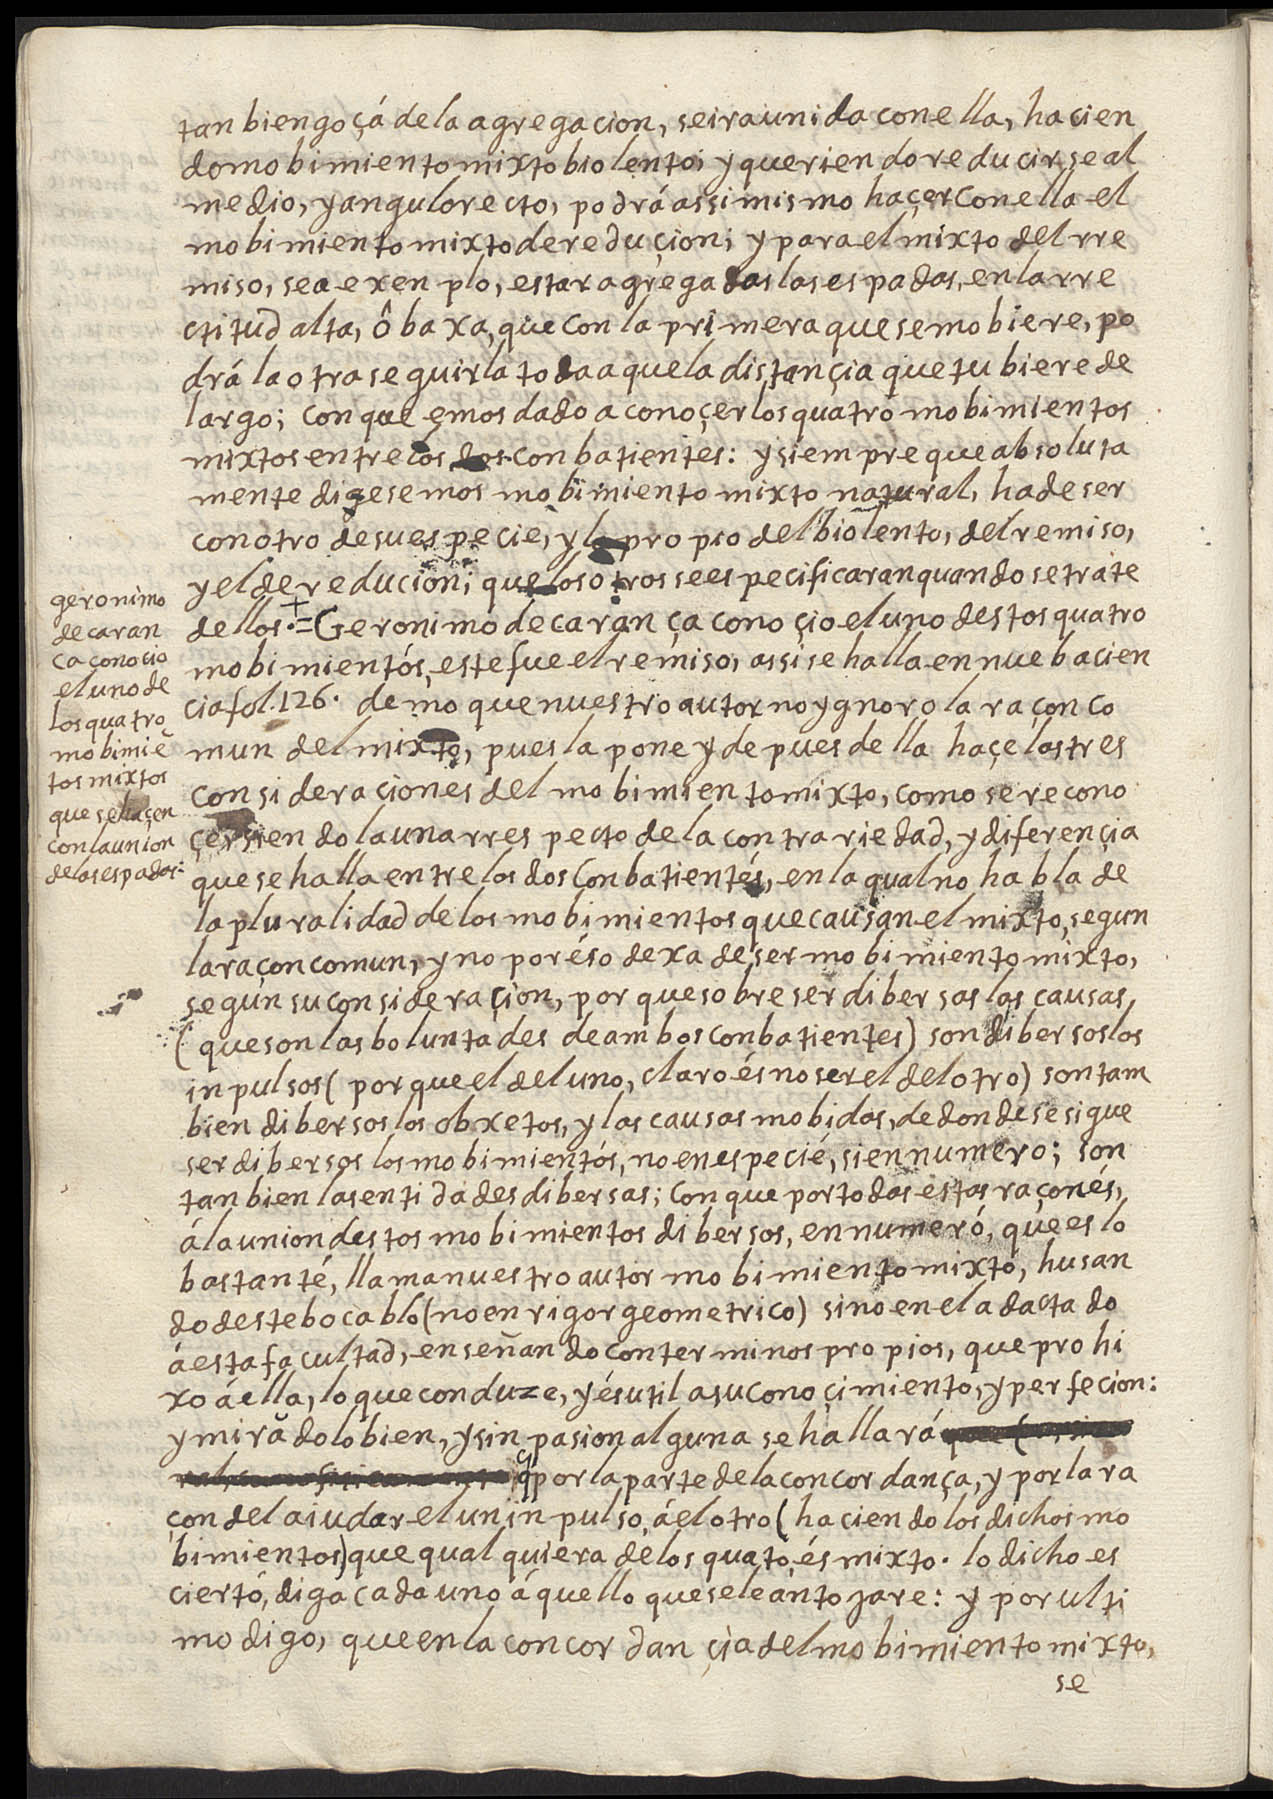 tanbien goçá de la agregacion, se ira unida con ella, hacien
do mobimiento mixto biolento; y queriendo reducirse al
medio, y angulo recto, podrá assimismo haçer con ella el
mobimiento mixto de reduçion; y para el mixto del rre
miso, sea exenplo, estar agregadas las espadas, en la rre
ctitud alta, ô baxa, que con la primera que se mobiere, po
drá la otra seguirla toda aquela distançia que tubiere de
largo; con que emos dado a conoçer los quatro mobimientos
mixtos entre los dos conbatientes: y siempre que absoluta
mente digesemos mobimiento mixto natural, ha de ser
con otro de su espeçie, y lo propio del biolento, del remiso,
y el de reducion; que los otros se especificaran quando se trate
dellos. += Geronimo de carança conoçio el uno destos quatro
mobimientós, este fue el remiso, assi se halla en nueba cien
cia fol. 126. de mo que nuestro autor no ygnoro la raçon co
mun del mixto, pues la pone y depues della haçe las tres
consideraçiones del mobimiento mixto, como se recono
çe, siendo la una rrespecto de la contrariedad, y diferençia
que se halla entre los dos conbatientés, en la qual no habla de
la pluralidad de los mobimientos que causan el mixto, segun
la raçon comun, y no por éso dexa de ser mobimiento mixto,
segun su consideraçion, porque sobre ser dibersas las causas,
(que son las boluntades de ambos conbatientes) son dibersos los
inpulsos (porque el del uno, claro és no ser el del otro) son tam
bien dibersos los obxetos, y las causas mobidas, de donde se sigue
ser dibersos los mobimientós, no en especié, si en numero; son
tanbien las entidades dibersas; con que por todas estas raçonés,
á la union destos mobimientos dibersos, en numeró, que es lo
bastanté, llama nuestro autor mobimiento mixto, husan
do deste bocablo (no en rigor geometrico) sino en el adacta do
á esta facultad, enseñando con terminos propios, que prohi
xo á ella, lo que conduze, y és util a su conoçimiento, y perfecion:
y mirãdolo bien, y sin pasion alguna se hallará
q̃ por la parte de la concordança, y por la ra
çon del aiudar el un inpulso, á el otro (haciendo los dichos mo
bimientos) que qual quiera de los quatõ, és mixto. lo dicho es
ciertó, diga cada uno áquello que se le antozare: y por ulti
mo digo, que en la concordançia del mobimiento mixto,
se
geronimo
de caran
ca conocio
el uno de
los quatro
mobimiẽ
tos mixtos
que se haçen
con la union
de las espadas: